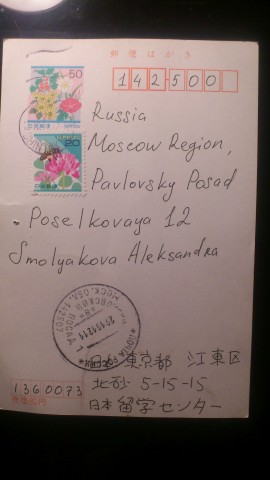 郵便はがき
50
日本郵便
NIPPON
20
日本郵便
142500
Russia
Moscow Region,
Pavlovsky Posad
Poselkovaya 12
Smolyakova Aleksandra
日本 東京都 江東区
北砂 5-15-15
日本留学センター
1360073